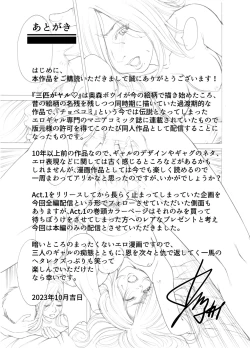 あとがき
はじめに、
本作品をご購読いただきまして誠にありがとうございます！
『三匹がヤル♡』は奥森ボウイが今の絵柄で描き始めたころ、
昔の絵柄の名残を残しつつ同時期に描いていた過渡期的な
作品で、「チョベコミ」という今では伝説となってしまった
エロギャル専門のマニアコミック誌に連載されていたもので
版元様の許可を得てこのたび同人作品として配信することに
なったものです。
10年以上前の作品なので、ギャルのデザインやギャグのネタ、
エロ表現などに関しては古く感じるところなどがあるかも
しれませんが、漫画作品としては今でも楽しく読めるので
一周まわってアリかなと思ったのですが、いかがでしょうか？
Act.1をリリースしてから長らく止まってしまっていた企画を
今回全編配信という形でフォローさせていただいた側面も
ありますが、Act.1の巻頭カラーページはそれのみを買って
待ちぼうけをさせてしまった方へのレアなプレゼントと考え
今回は本編のみの配信とさせていただきました。
暗いところのまったくないエロ漫画ですので、
三人のギャルの痴態とともに、恩を次々と他で返してく一馬の
ヘタレクズっぷりも笑って
楽しんでいただけた
なら幸いです。
2023年10月吉日